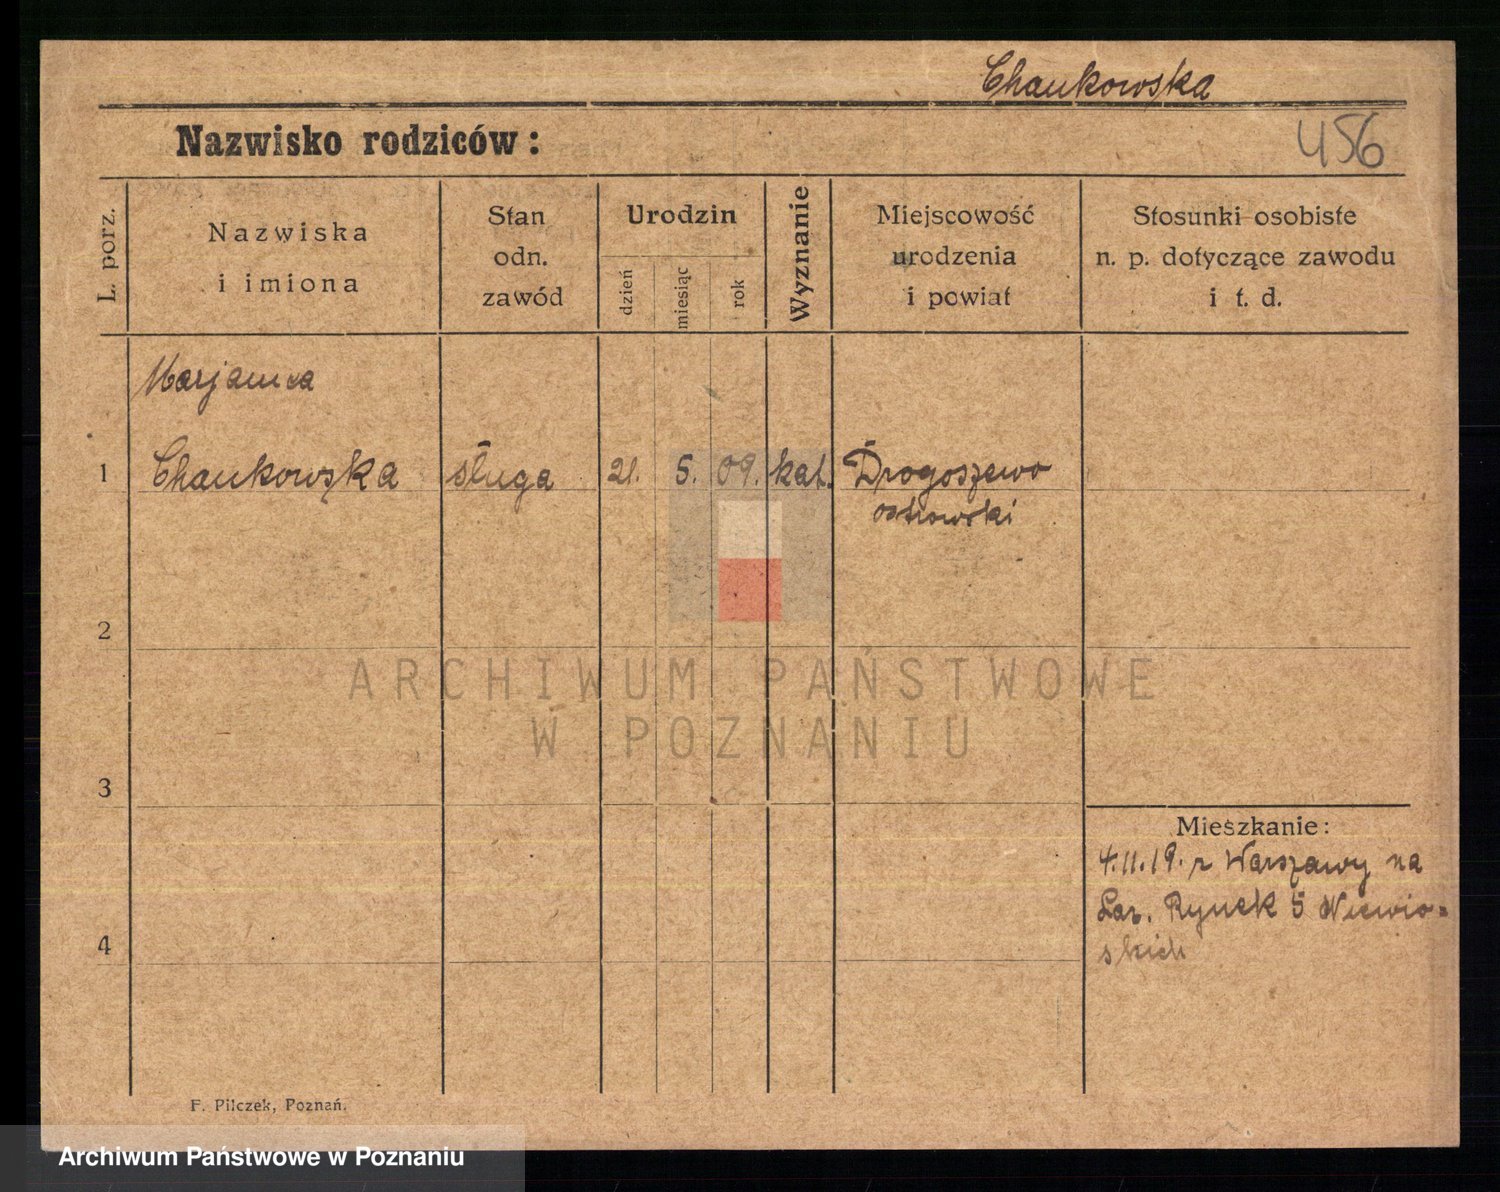 Chaukowska
Nazwisko rodziców:
456
L. porz.
Nazwiska
i imiona
Stan
odn.
zawód
Urodzin
dzień
miesiąc
rok
Wyznanie
Miejscowość
urodzenia
i powiat
Stosunki osobiste
n. p. dotyczące zawodu
i t. d.
Marjanna
1 Chaukowska sługa 21. 5. 09. kat. Drogoszewo
ostrowski
2
3
4
Mieszkanie:
4.11.19. z Warszawy na
Łaz. Rynek 5 Niewio-
skich
ARCHIWUM PAŃSTWOWE
W POZNANIU
F. Pilczek, Poznań.
Archiwum Państwowe w Poznaniu